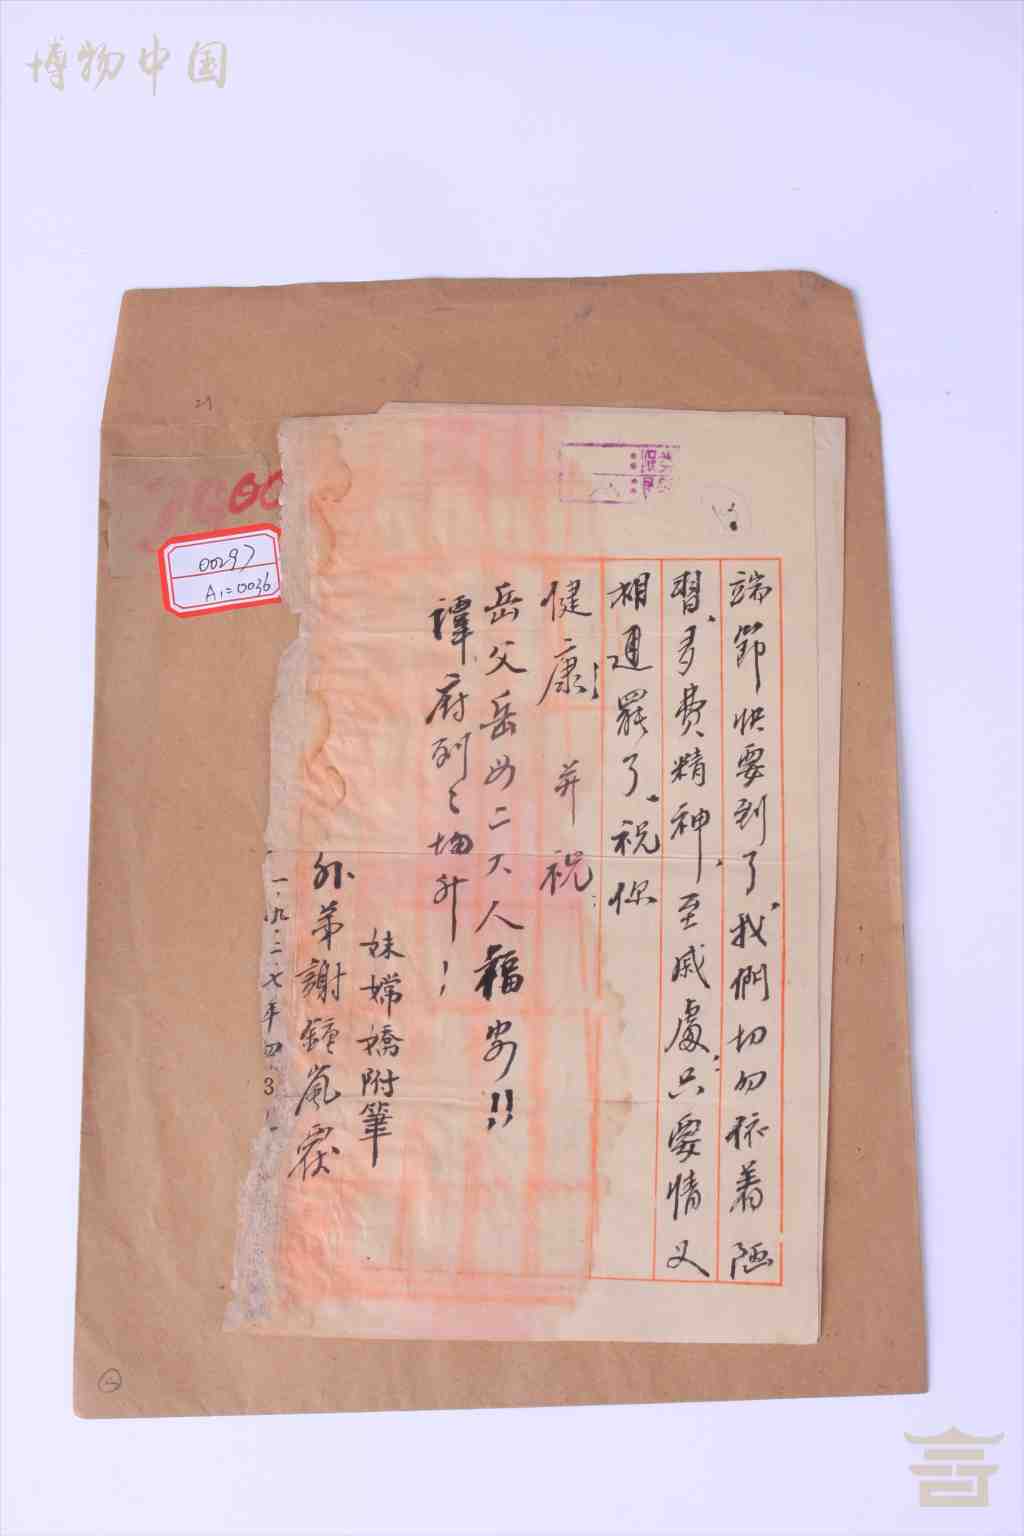 博物中国
00297
A1=0036
端節快要到了,我們切勿依着陋
習,多費精神,至戚處,只要情义
相通罷了,祝你
健康;并祝
岳父岳母二大人福安!!
譚府列々均升!
妹嫦嬌附筆
外弟謝鐘嵐覆
一.九.二.七年.四.3.